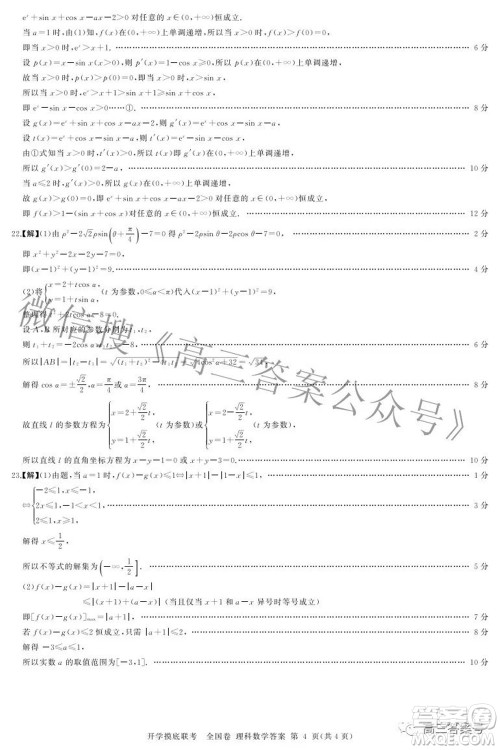 eˣ+sin x+cos x-ax-2>0 对任意的 x∈(0,+∞)恒成立.
当 a=1 时,由(1)知,f(x)在(0,+∞)上单调递增,所以当 x>0 时,f(x)>f(0)=0,
即当 x>0 时,eˣ>x+1. 6 分
设 p(x)=x-sin x(x>0),则 p′(x)=1-cos x≥0,所以 p(x)在(0,+∞)上单调递增,
故当 x>0 时,p(x)>p(0)=0,即当 x>0 时,x>sin x,
所以当 x>0 时,eˣ>x+1>sin x+1≥sin x+cos x,
即 eˣ-sin x-cos x>0……①. 8 分
设 g(x)=eˣ+sin x+cos x-ax-2,则 g′(x)=eˣ+cos x-sin x-a,
设 t(x)=eˣ+cos x-sin x-a,则 t′(x)=eˣ-sin x-cos x,
由①式知当 x>0 时,t′(x)>0,所以 t(x)即 g′(x)在(0,+∞)上单调递增,
所以 g′(x)>g′(0)=2-a, 10 分
当 a≤2 时,g′(x)>0,所以 g(x)在(0,+∞)上单调递增,
故 g(x)>g(0)=0,即 g(x)>0 对任意的 x∈(0,+∞)恒成立,
即 f(x)>1-(sin x+cos x)对任意的 x∈(0,+∞)恒成立. 12 分
22.【解】(1)由 ρ²-2√2ρsin(θ+π/4)-7=0 得 ρ²-2ρsin θ-2ρcos θ-7=0, 2 分
即 x²+y²-2x-2y-7=0,
即(x-1)²+(y-1)²=9. 4 分
(2)将{x=2+tcos α, y=1+tsin α (t 为参数,0≤α<π)代入(x-1)²+(y-1)²=9,
整理得 t²+2tcos α-8=0,
设 A,B 所对应的参数分别为 t₁,t₂,
则 t₁+t₂=-2cos α,t₁t₂=-8, 6 分
所以|AB|=|t₁-t₂|=√((t₁+t₂)²-4t₁t₂)=√(4cos²α+32)=√34,
解得 cos α=±√2/2,α=π/4或 α=3π/4, 8 分
故直线 l 的参数方程为{x=2+√2/2t, y=1+√2/2t (t 为参数)或{x=2-√2/2t, y=1+√2/2t (t 为参数),
所以直线 l 的直角坐标方程为 x-y-1=0 或 x+y-3=0. 10 分
23.【解】(1)由题,当 a=1 时,f(x)-g(x)≤1⇔|x+1|-|1-x|≤1, 1 分
⇔{-2≤1,x≤-1, 2x≤1,-1<x<1, 2≤1,x≥1, 3 分
解得 x≤1/2,
所以不等式的解集为(-∞,1/2]. 5 分
(2)f(x)-g(x)=|x+1|-|a-x|
≤|(x+1)+(a-x)|(当且仅当 x+1 和 a-x 异号时等号成立)
即[f(x)-g(x)]ₘₐₓ=|a+1|, 7 分
若 f(x)-g(x)≤2 恒成立,只需|a+1|≤2, 8 分
解得-3≤a≤1,
所以实数 a 的取值范围为[-3,1]. 10 分
微信搜《高三答案公众号》
开学摸底联考 全国卷 理科数学答案 第 4 页(共 4 页)
高三答案号